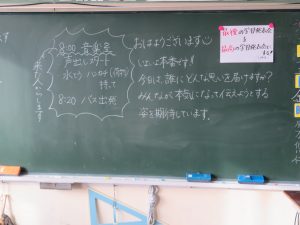 8:00 音楽室
声出しスタート
水とう ハンカチ
持って
8:20 バス出発
おはようございます
いよいよ本番です!!
今日は、誰にどんな思いを届けますか?
みんなが本気になって伝えようとする
姿を期待しています。
最後の学習発表会
を
最高の学習発表会と
する!!